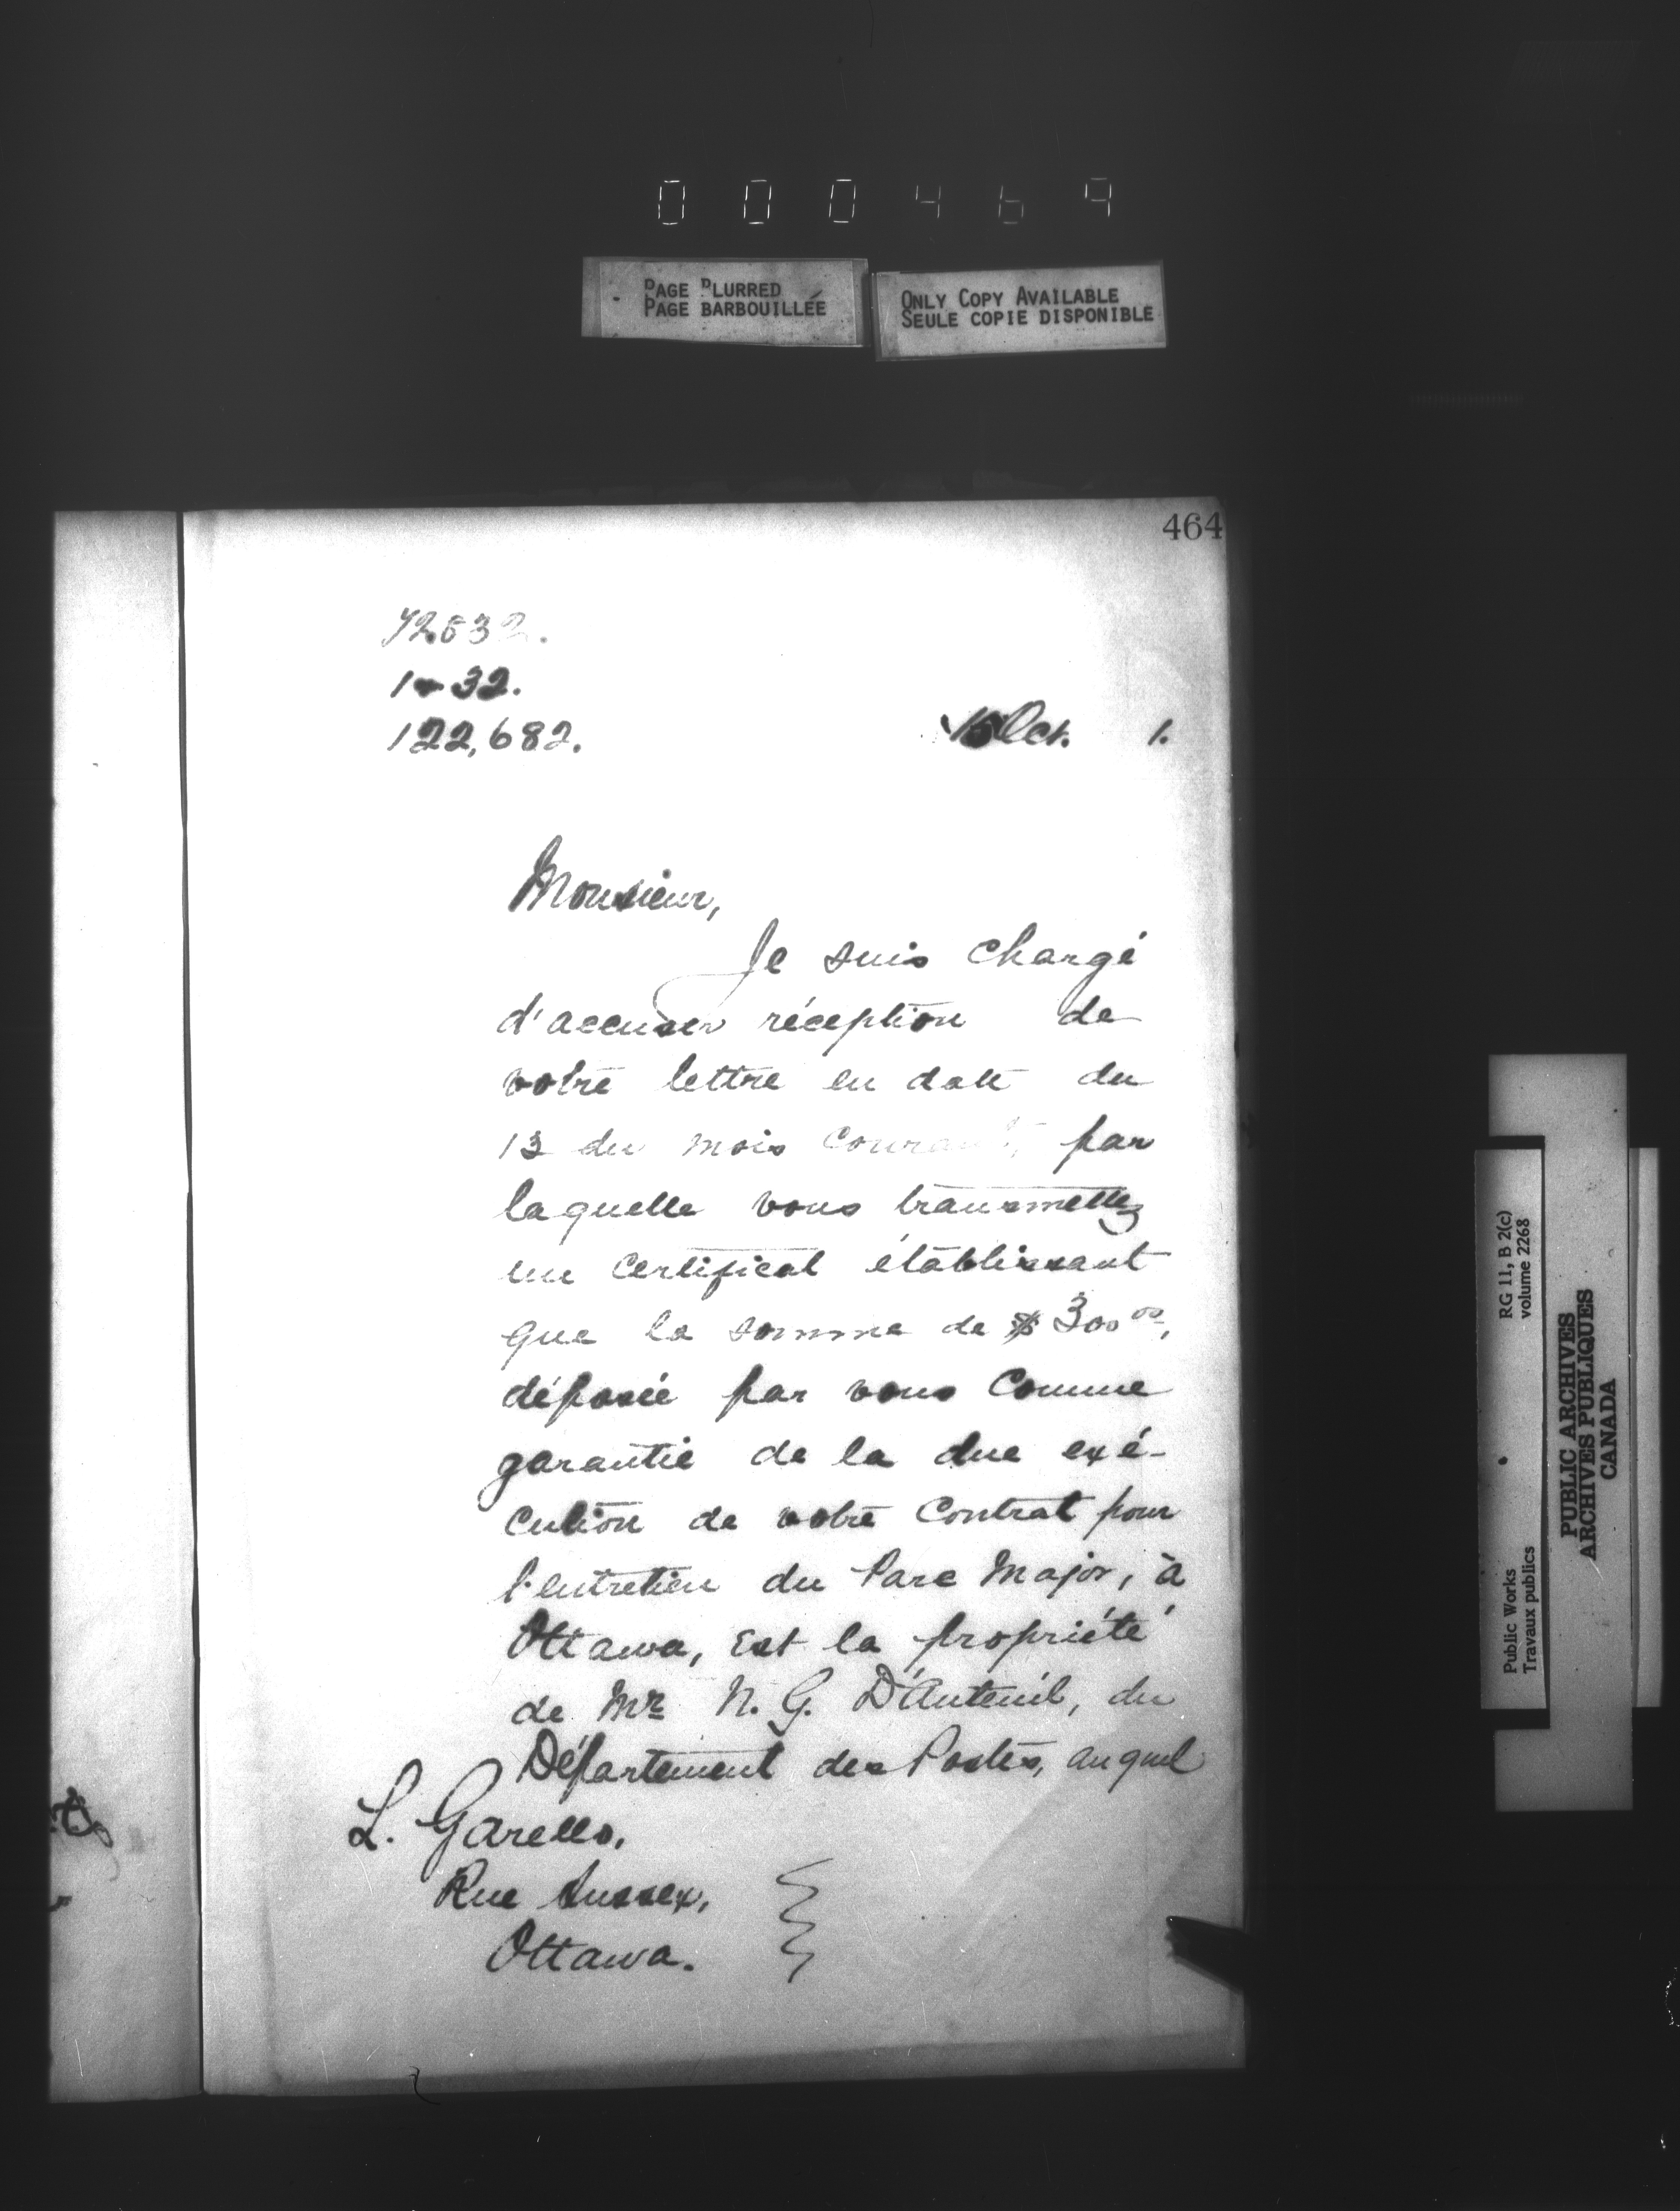 000469
PAGE BLURRED
PAGE BARBOUILLÉE
ONLY COPY AVAILABLE
SEULE COPIE DISPONIBLE
464
122,682.
15 Oct. 1.
Monsieur,
Je suis chargé
d'accuser réception de
votre lettre en date du
13 du mois courant, par
laquelle vous transmettez
un certificat établissant
que la somme de $300 00,
déposée par vous comme
garantie de la due exé-
cution de votre contrat pour
l'entretien du Parc Major, à
Ottawa, est la propriété
de Mr N. G. D'Auteuil, du
Département des Postes, auquel
L. Garello,
Rue Sussex,
Ottawa.
Public Works
Travaux publics
RG 11, B 2(c)
volume 2268
PUBLIC ARCHIVES
ARCHIVES PUBLIQUES
CANADA